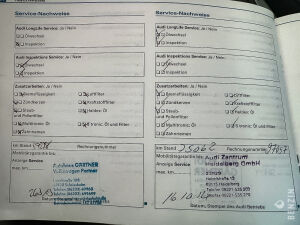 Service-Nachweise
Audi LongLife Service: Ja / Nein
Ölwechsel
Inspektion
Audi Inspektions Service: Ja / Nein
Ölwechsel
Inspektion
Zusatzarbeiten: Ja / Nein
Bremsflüssigkeit
Luftfilter
Zündkerzen
Kraftstofffilter
Staub- und Pollenfilter
Haldex Öl
Multitronic Öl
S tronic Öl und Filter
Zahnriemen
km Stand
Rechnungsnummer
Mobilitätsgarantie bis:
Anzeige Service:
max. km
Autohaus GÄRTNER
Volkswagen Partner
Service-Nachweise
Audi LongLife Service: Ja / Nein
Ölwechsel
Inspektion
Audi Inspektions Service: Ja / Nein
Ölwechsel
Inspektion
Zusatzarbeiten: Ja / Nein
Bremsflüssigkeit
Luftfilter
Zündkerzen
Kraftstofffilter
Staub- und Pollenfilter
Haldex Öl
Multitronic Öl
S tronic Öl und Filter
Zahnriemen
km Stand 25062
Rechnungsnummer
Mobilitätsgarantie bis:
Audi Zentrum
Anzeige Service:
Heidelberg GmbH
max. km
16.10.
Datum, Stempel des Audi Betriebs
BENZIN